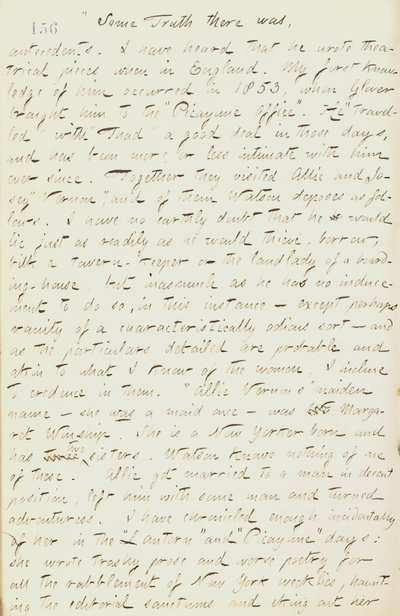 156
"Some Truth there was,
antecedents. I have heard that he wrote thea-
trical pieces when in England. My first know-
ledge of him occurred in 1853, when Glover
brought him to the "Picayune Office". He "travel-
led" with "Thad" a good deal in those days,
and has been more or less intimate with him
ever since. Together they visited Allie and Jo-
sey "Vernon", and of them Watson deposes as fol-
lows. I have no earthly doubt that he would
lie just as readily as he would thieve, borrow,
bilk a tavern-keeper or the landlady of a board-
ing-house, but inasmuch as he has no induce-
ment to do so, in this instance — except perhaps
vanity of a characteristically odious sort — and
as the particulars detailed are probable and
akin to what I know of the women, I incline
to credence in them. "Allie Vernon's" maiden
name — she was a maid once — was Marga-
ret Winship. She is a New Yorker born and
has three sisters. Watson knows nothing of one
of these. Allie got married to a man in decent
position, left him with some man and turned
adventuress. I have chronicled enough incidentally
of her in the "Lantern" and "Picayune" days:
she wrote trashy prose and worse poetry for
all the rabblement of New York weeklies, haunt-
ing the editorial sanctums and eking out her